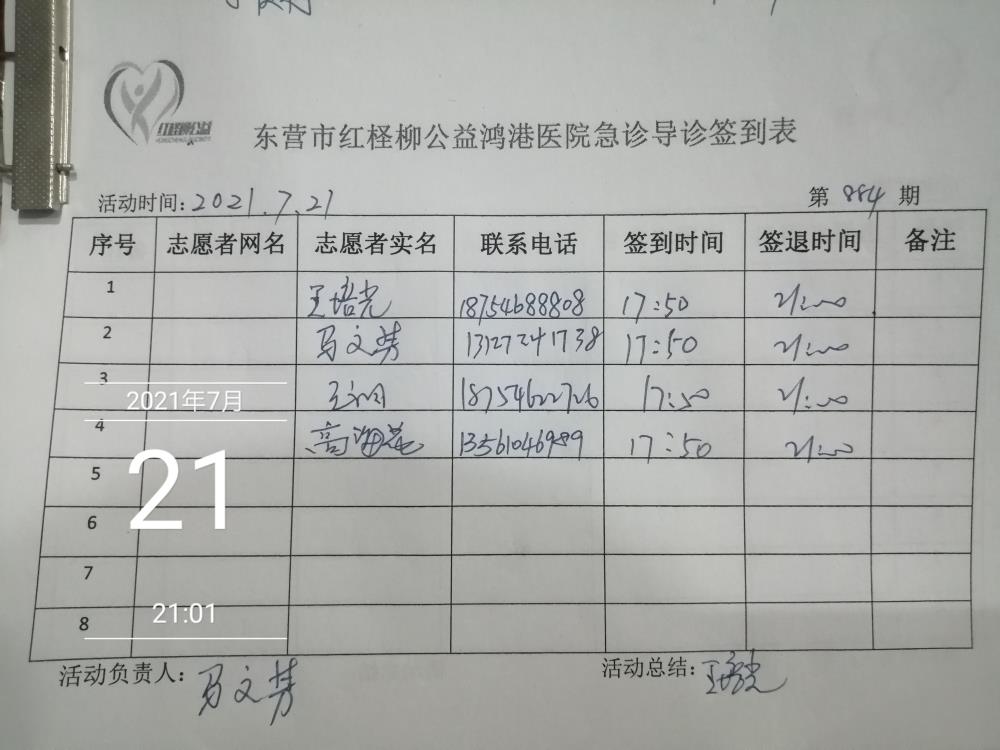 红柽柳公益
东营市红柽柳公益鸿港医院急诊导诊签到表
活动时间:2021.7.21 第 884 期
序号 志愿者网名 志愿者实名 联系电话 签到时间 签退时间 备注
1 王培光 18754688808 17:50 21:00
2 马文芳 13127241738 17:50 21:00
3 18754622726 17:50 21:00
2021年7月
4 高海花 13561046989 17:50 21:00
5
21
6
7
21:01
8
活动负责人: 马文芳 活动总结: 王培光